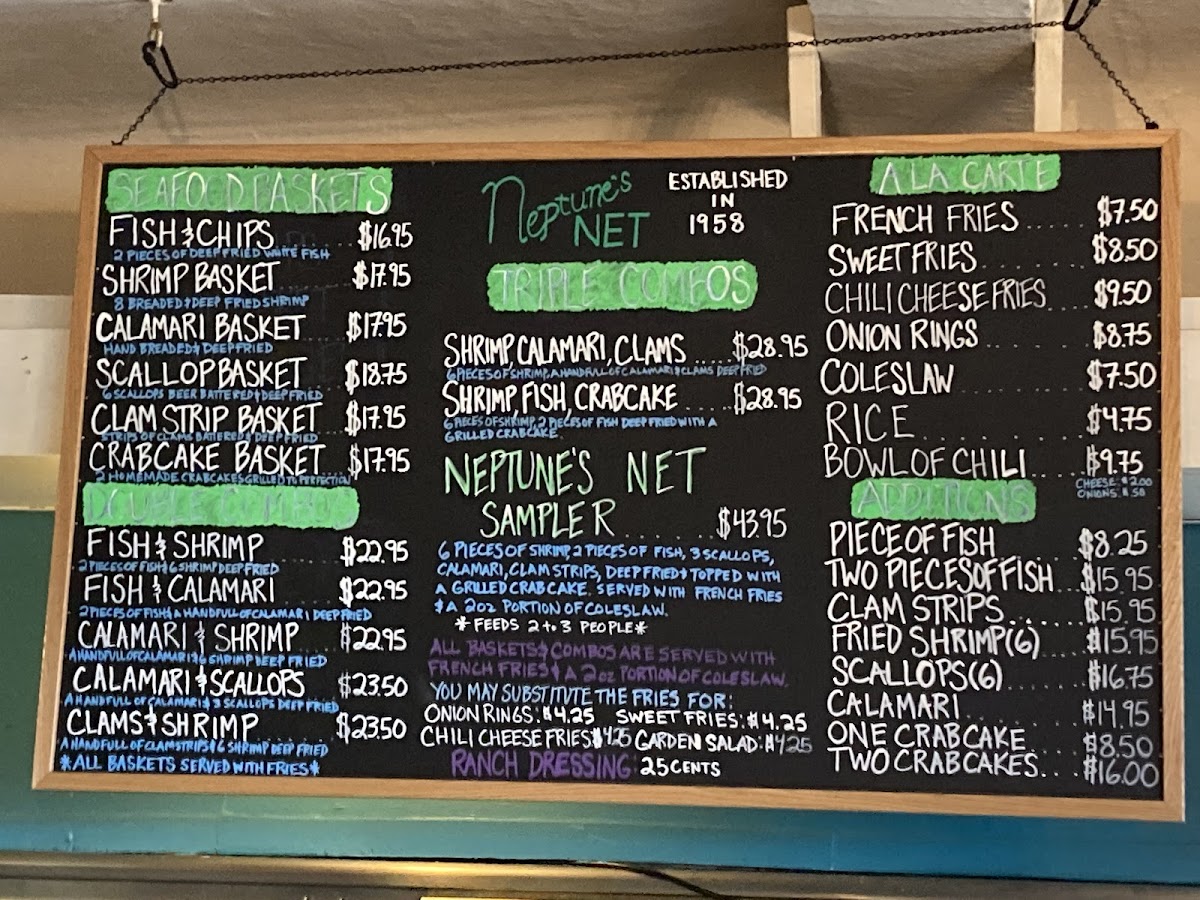 SEAFOOD BASKETS
FISH & CHIPS $16.95
2 PIECES OF DEEP FRIED WHITE FISH
SHRIMP BASKET $17.95
8 BREADED & DEEP FRIED SHRIMP
CALAMARI BASKET $17.95
HAND BREADED & DEEP FRIED
SCALLOP BASKET $18.75
6 SCALLOPS BEER BATTERED & DEEP FRIED
CLAM STRIP BASKET $17.95
STRIPS OF CLAMS BATTERED & DEEP FRIED
CRABCAKE BASKET $17.95
2 HOMEMADE CRABCAKES GRILLED TO PERFECTION
DOUBLE COMBO
FISH & SHRIMP $22.95
2 PIECES OF FISH & 6 SHRIMP DEEP FRIED
FISH & CALAMARI $22.95
2 PIECES OF FISH & A HANDFULL OF CALAMARI DEEP FRIED
CALAMARI & SHRIMP $22.95
A HANDFULL OF CALAMARI & 6 SHRIMP DEEP FRIED
CALAMARI & SCALLOPS $23.50
A HANDFULL OF CALAMARI & 3 SCALLOPS DEEP FRIED
CLAMS & SHRIMP $23.50
A HANDFULL OF CLAM STRIPS & 6 SHRIMP DEEP FRIED
*ALL BASKETS SERVED WITH FRIES*
Neptune's
NET
ESTABLISHED
IN
1958
TRIPLE COMBOS
SHRIMP, CALAMARI, CLAMS ..... $28.95
6 PIECES OF SHRIMP, A HANDFULL OF CALAMARI & CLAMS DEEP FRIED
SHRIMP, FISH, CRABCAKE ...... $28.95
6 PIECES OF SHRIMP, 2 PIECES OF FISH DEEP FRIED WITH A
GRILLED CRABCAKE.
NEPTUNE'S NET
SAMPLER ........ $43.95
6 PIECES OF SHRIMP, 2 PIECES OF FISH, 3 SCALLOPS,
CALAMARI, CLAM STRIPS, DEEP FRIED & TOPPED WITH
A GRILLED CRABCAKE. SERVED WITH FRENCH FRIES
& A 2oz PORTION OF COLESLAW.
*FEEDS 2 to 3 PEOPLE*
ALL BASKETS & COMBOS ARE SERVED WITH
FRENCH FRIES & A 2oz PORTION OF COLESLAW.
YOU MAY SUBSTITUTE THE FRIES FOR:
ONION RINGS: $4.25 SWEET FRIES: $4.25
CHILI CHEESE FRIES $4.25 GARDEN SALAD: $4.25
RANCH DRESSING: 25 CENTS
A LA CARTE
FRENCH FRIES $7.50
SWEET FRIES $8.50
CHILI CHEESE FRIES $9.50
ONION RINGS $8.75
COLESLAW $7.50
RICE $4.75
BOWL OF CHILI $9.75
CHEESE: $2.00
ONIONS: $.50
ADDITIONS
PIECE OF FISH $8.25
TWO PIECES OF FISH $15.95
CLAM STRIPS.... $15.95
FRIED SHRIMP (6) $15.95
SCALLOPS (6) $16.75
CALAMARI $14.95
ONE CRABCAKE $8.50
TWO CRABCAKES... $16.00